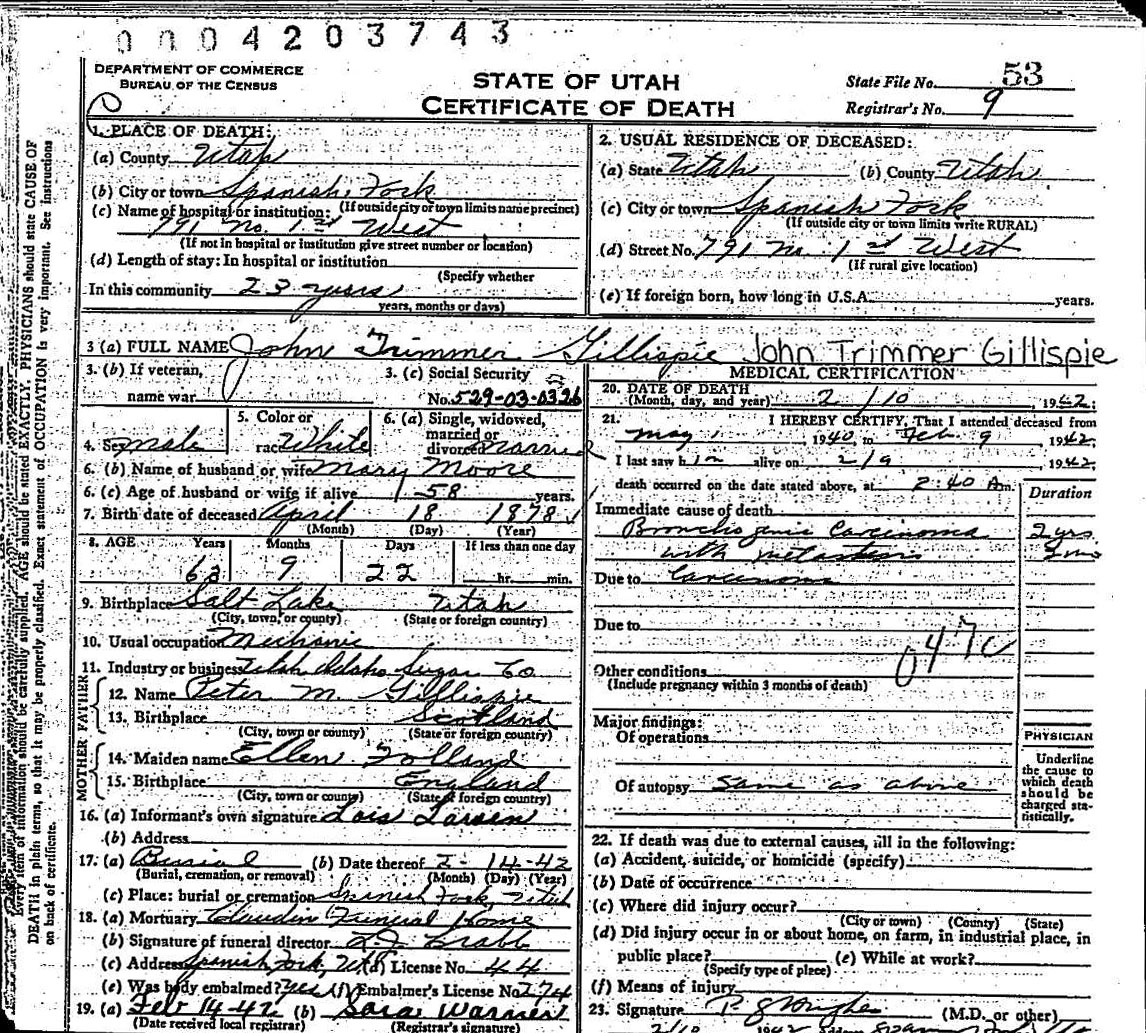 0004203743
DEPARTMENT OF COMMERCE
BUREAU OF THE CENSUS
STATE OF UTAH
CERTIFICATE OF DEATH
State File No. 53
Registrar's No. 9
1. PLACE OF DEATH:
(a) County Utah
(b) City or town Spanish Fork
(If outside city or town limits name precinct)
(c) Name of hospital or institution:
791 No. 1st West
(If not in hospital or institution give street number or location)
(d) Length of stay: In hospital or institution
(Specify whether
In this community 23 years
years, months or days)
2. USUAL RESIDENCE OF DECEASED:
(a) State Utah (b) County Utah
(c) City or town Spanish Fork
(If outside city or town limits write RURAL)
(d) Street No. 791 No. 1st West
(If rural give location)
(e) If foreign born, how long in U.S.A. years.
3 (a) FULL NAME John Trimmer Gillispie John Trimmer Gillispie
3. (b) If veteran,
name war
3. (c) Social Security
No. 529-03-0326
4. Sex male
5. Color or
race White
6. (a) Single, widowed,
married or
divorced Married
6. (b) Name of husband or wife Mary Moore
6. (c) Age of husband or wife if alive 58 years.
7. Birth date of deceased April 18 1878
(Month) (Day) (Year)
8. AGE Years Months Days If less than one day
63 9 22 hr. min.
9. Birthplace Salt Lake Utah
(City, town, or county) (State or foreign country)
10. Usual occupation Mechanic
11. Industry or business Utah Idaho Sugar Co
FATHER
12. Name Peter M. Gillispie
13. Birthplace Scotland
(City, town or county) (State or foreign country)
MOTHER
14. Maiden name Ellen Folland
15. Birthplace England
(City, town or county) (State or foreign country)
16. (a) Informant's own signature Lois Larsen
(b) Address
17. (a) Burial (b) Date thereof 2-14-42
(Burial, cremation, or removal) (Month) (Day) (Year)
(c) Place: burial or cremation Spanish Fork, Utah
18. (a) Mortuary Claudin Funeral Home
(b) Signature of funeral director
(c) Address Spanish Fork, Ut (d) License No. 44
(e) Was body embalmed? yes (f) Embalmer's License No. 274
19. (a) Feb 14-42 (b) Sara Warner
(Date received local registrar) (Registrar's signature)
MEDICAL CERTIFICATION
20. DATE OF DEATH
(Month, day, and year) 2/10, 1942.
21. I HEREBY CERTIFY, That I attended deceased from
May 1, 1940, to Feb. 9 1942.
I last saw him alive on 2/9, 1942,
death occurred on the date stated above, at 2:40 Am.
Duration
Immediate cause of death
Bronchogenic Carcinoma 2 yrs.
with metastasis
Due to Carcinoma
Due to
047c
Other conditions
(Include pregnancy within 3 months of death)
Major findings:
Of operations
Of autopsy Same as above
PHYSICIAN
Underline
the cause to
which death
should be
charged sta-
tistically.
22. If death was due to external causes, fill in the following:
(a) Accident, suicide, or homicide (specify)
(b) Date of occurrence
(c) Where did injury occur?
(City or town) (County) (State)
(d) Did injury occur in or about home, on farm, in industrial place, in
public place? (e) While at work?
(Specify type of place)
(f) Means of injury
23. Signature (M.D. or other)
2/10 1942
Every item of information should be carefully supplied. AGE should be stated EXACTLY. PHYSICIANS should state CAUSE OF
DEATH in plain terms, so that it may be properly classified. Exact statement of OCCUPATION is very important. See instructions
on back of certificate.